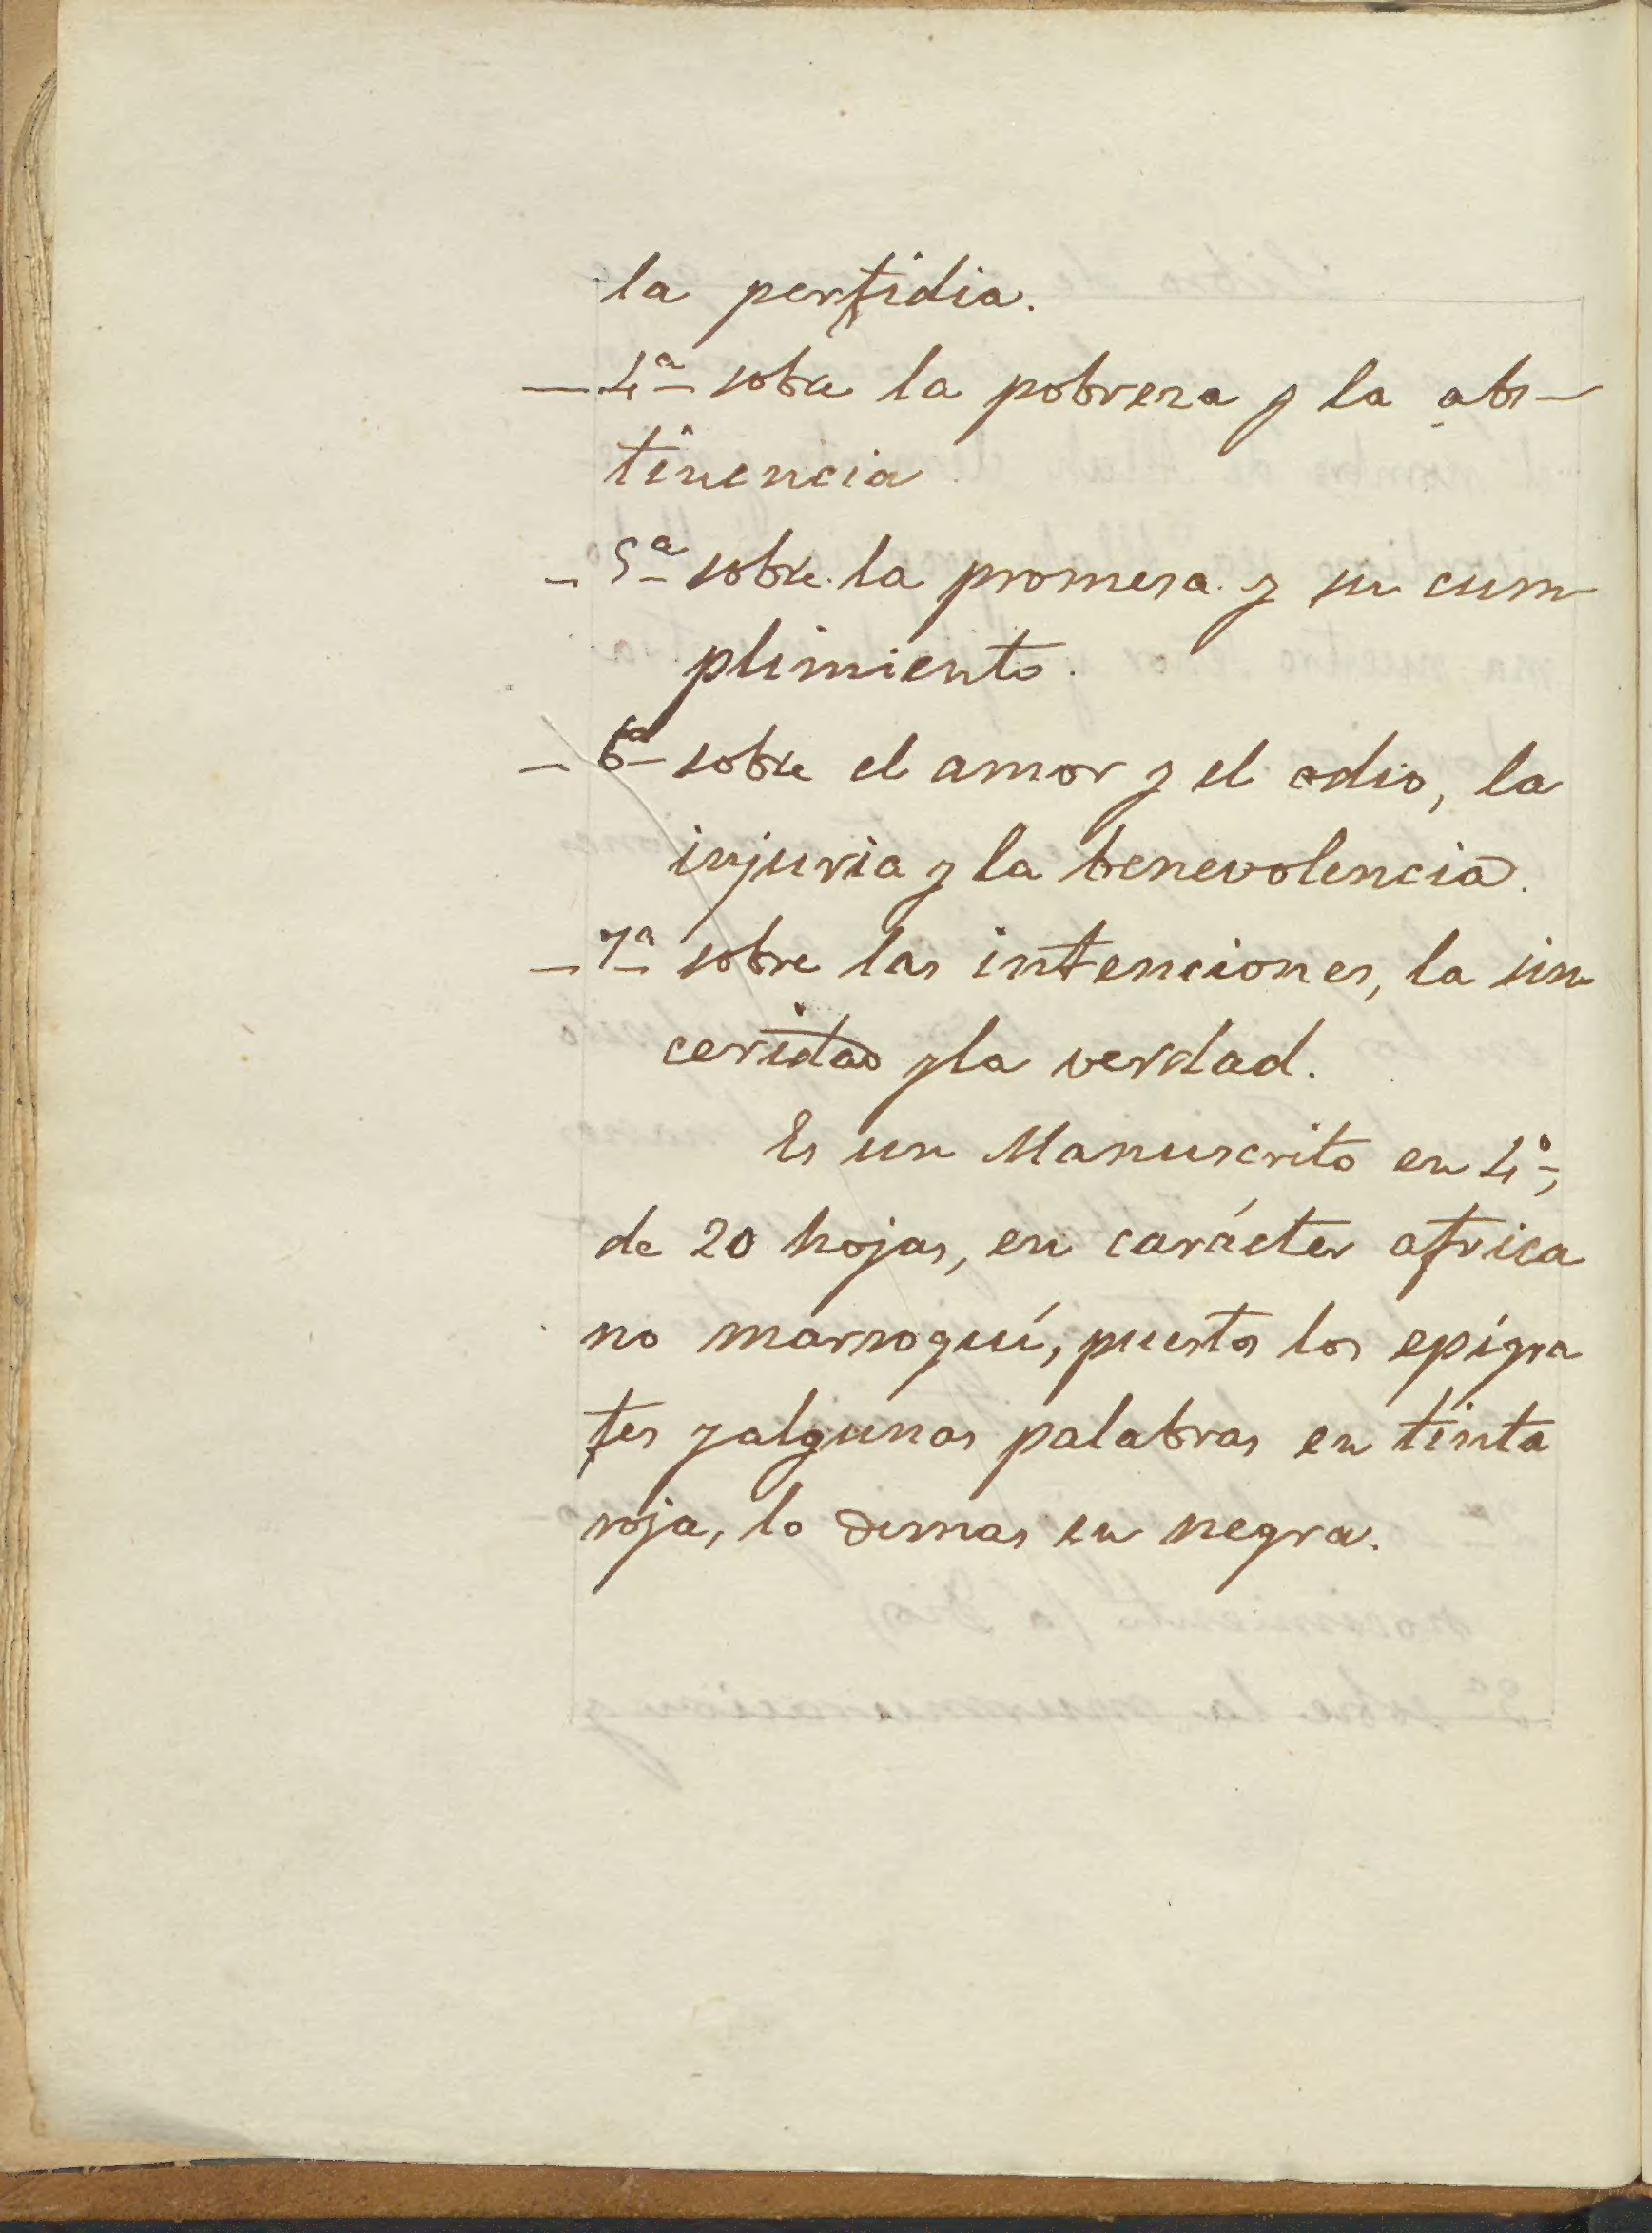 la perfidia.
— 4ª sobre la pobreza y la abs-
tinencia
— 5ª sobre la promesa y su cum-
plimiento.
— 6ª sobre el amor y el odio, la
injuria y la benevolencia.
— 7ª sobre las intenciones, la sin
ceridad y la verdad.
Es un Manuscrito en 4º,
de 20 hojas, en carácter africa
no marroquí, puestos los epígra
fes y algunas palabras en tinta
roja, lo demas en negra.